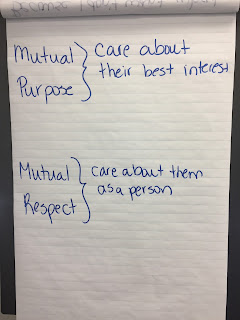 Mutual } care about
Purpose } their best interest
Mutual } care about them
Respect } as a person